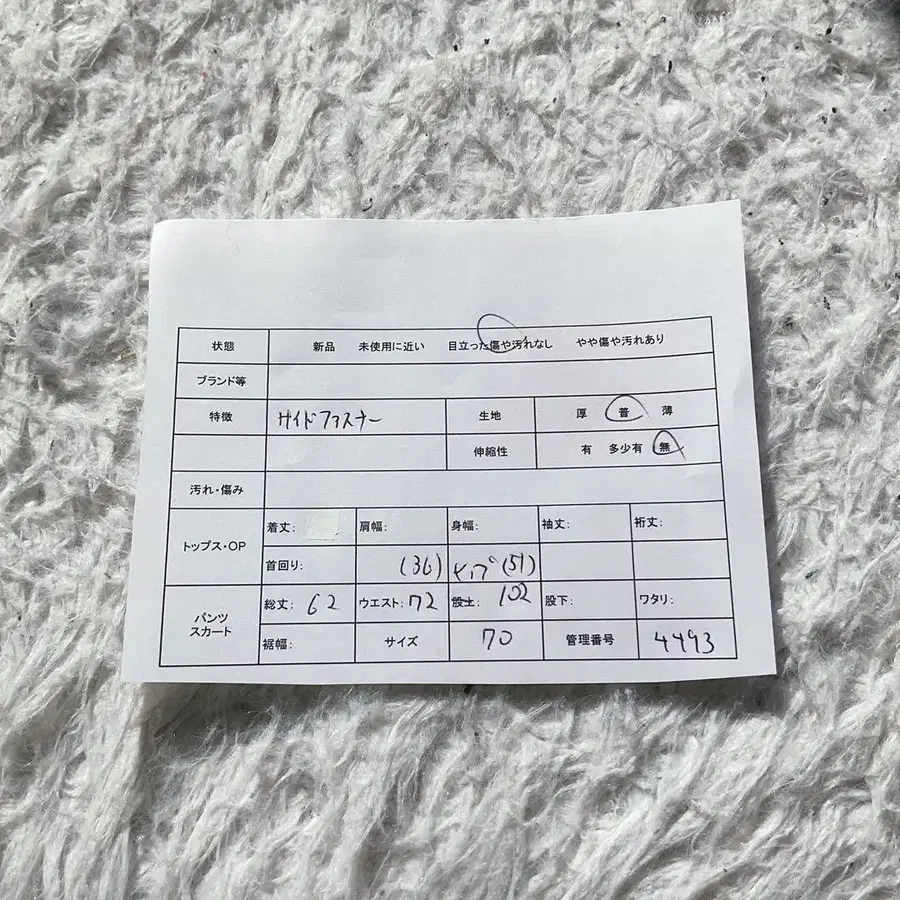 状態 新品 未使用に近い 目立った傷や汚れなし やや傷や汚れあり
ブランド等
特徴 サイドファスナー 生地 厚 普 薄
伸縮性 有 多少有 無
汚れ・傷み
トップス・OP 着丈: 肩幅: 身幅: 袖丈: 裄丈:
首回り: (36) ヒップ(51)
パンツ スカート 総丈: 62 ウエスト: 72 股上: 102 股下: ワタリ:
裾幅: サイズ 70 管理番号 4493